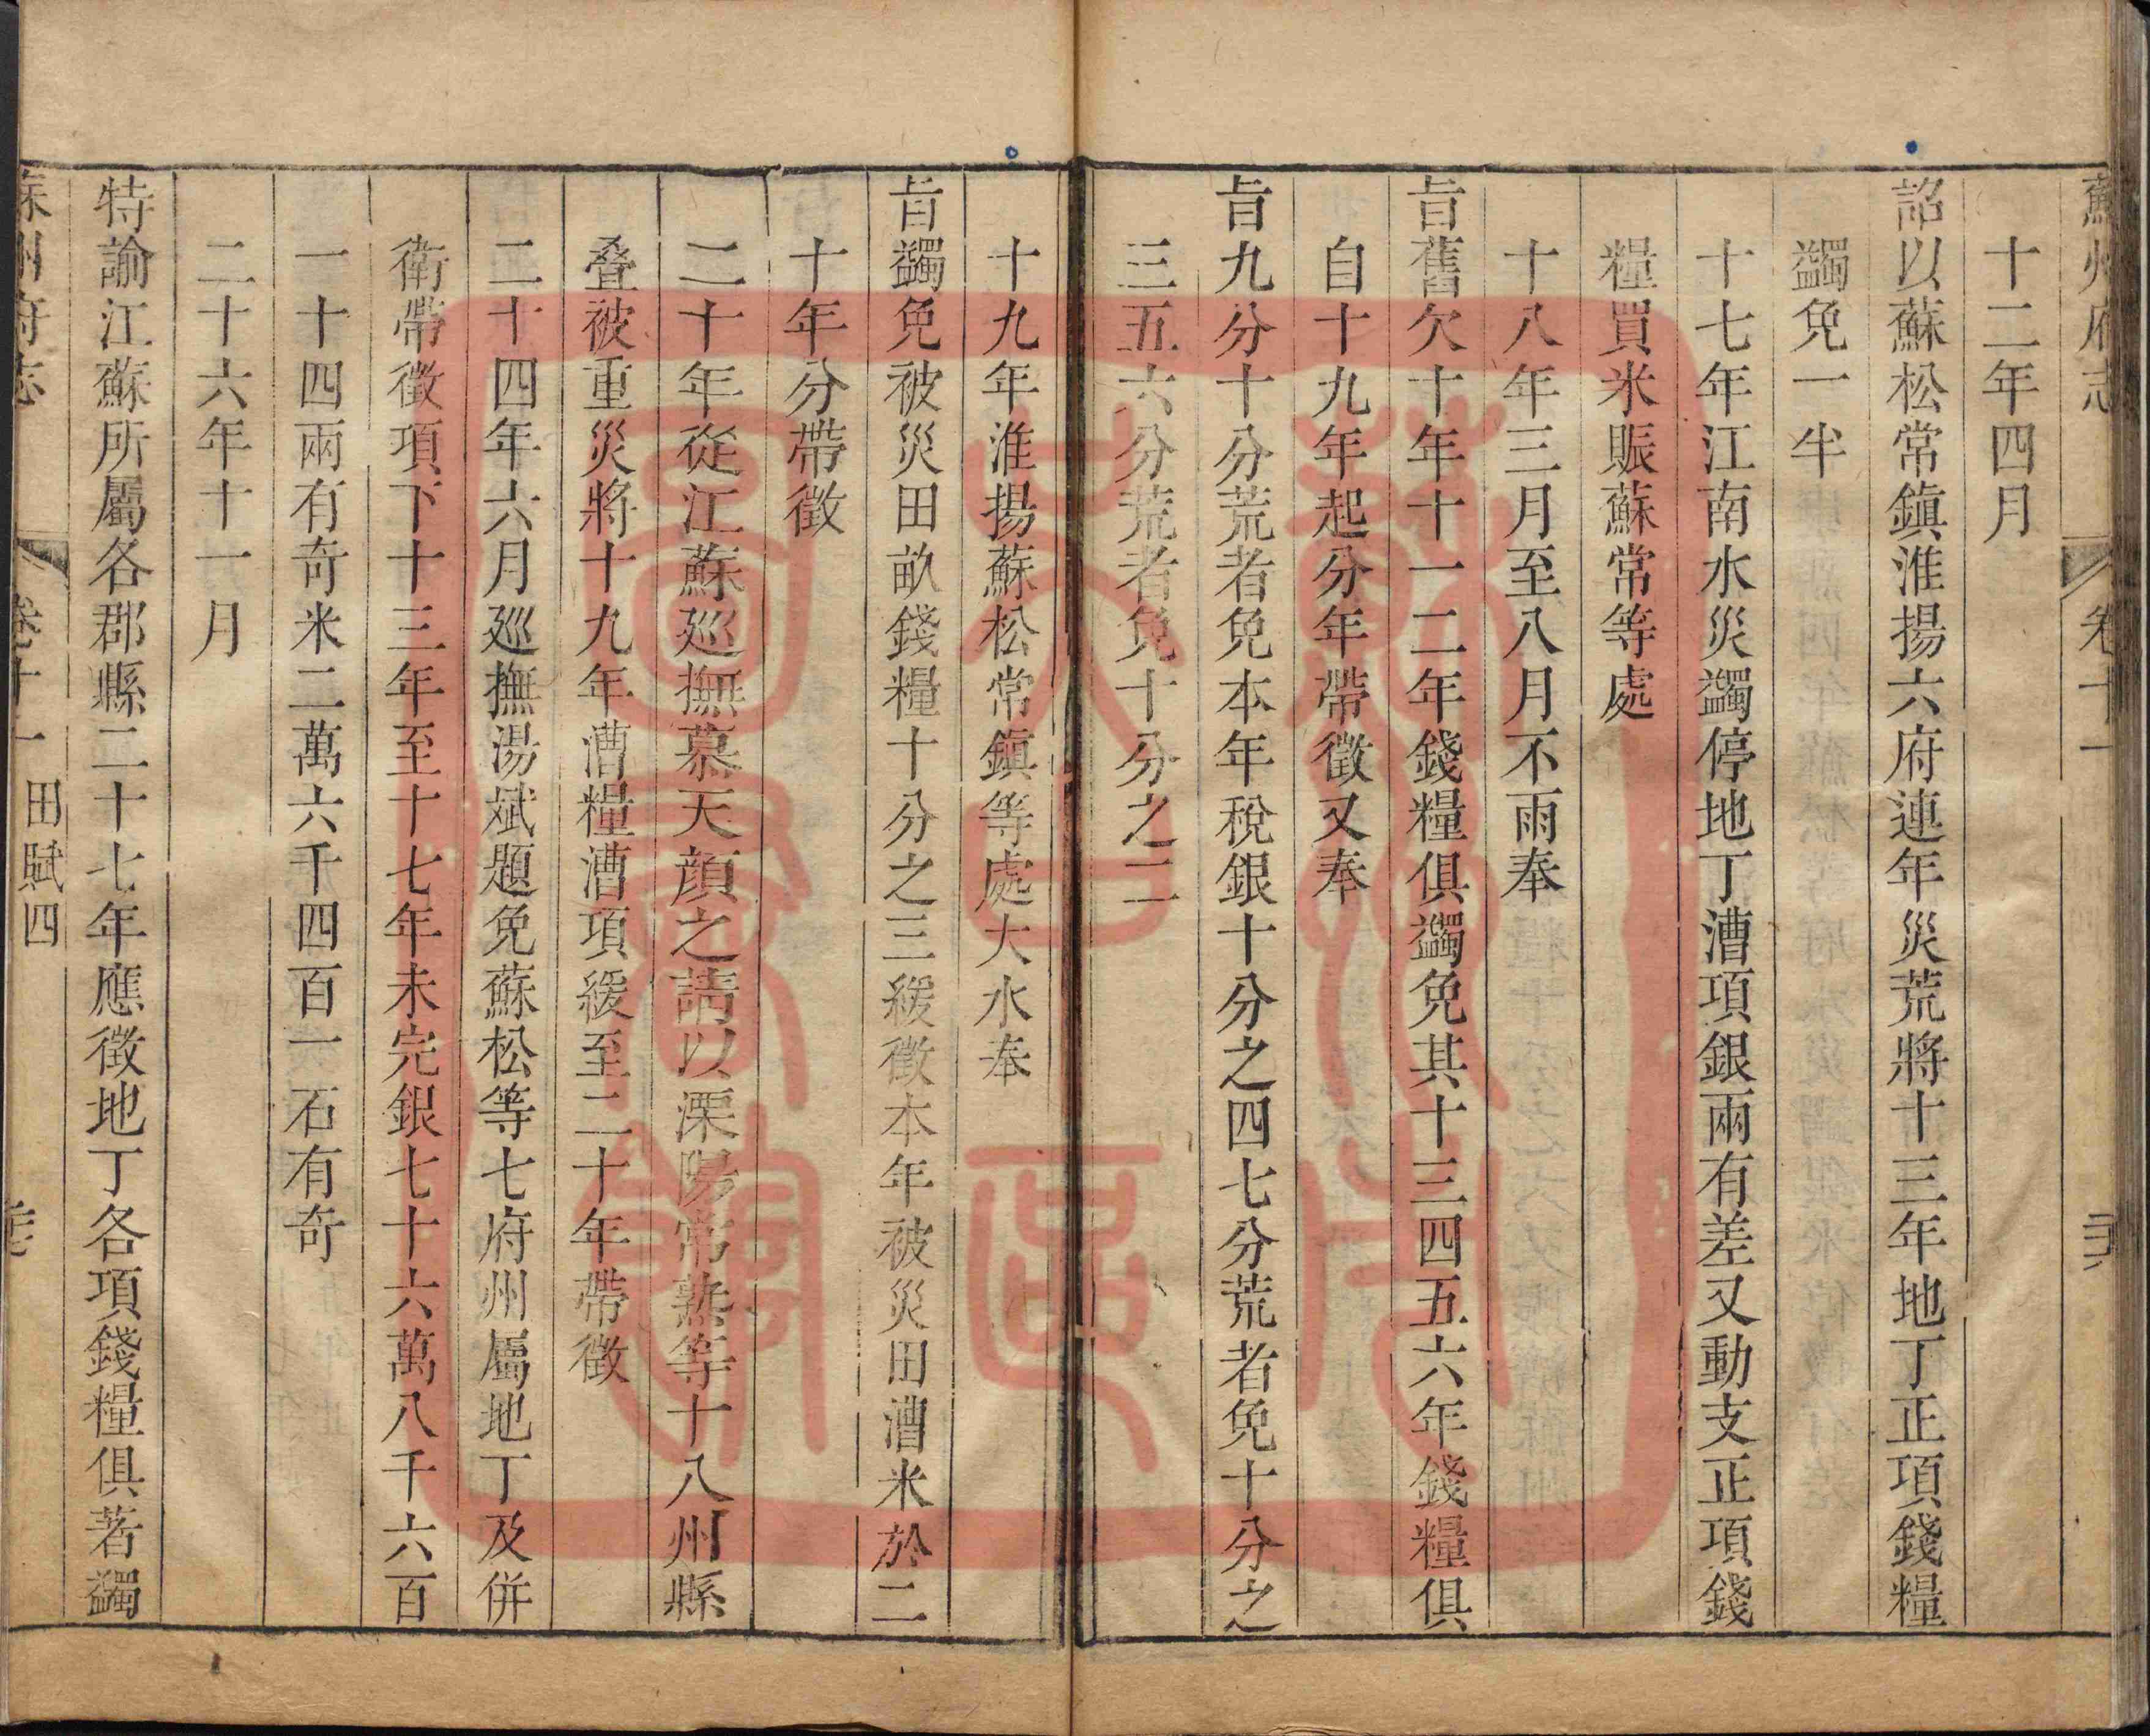 蘇州府志 卷十一 二六
十二年四月
詔以蘇松常鎮淮揚六府連年災荒將十三年地丁正項錢糧
蠲免一半
十七年江南水災蠲停地丁漕項銀兩有差又動支正項錢
糧買米賑蘇常等處
十八年三月至八月不雨奉
旨舊欠十年十一二年錢糧俱蠲免其十三四五六年錢糧俱
自十九年起分年帶徵又奉
旨九分十分荒者免本年稅銀十分之四七分荒者免十分之
三五六分荒者免十分之二
十九年淮揚蘇松常鎮等處大水奉
旨蠲免被災田畝錢糧十分之三緩徵本年被災田漕米於二
十年分帶徵
二十年從江蘇廵撫慕天顏之請以溧陽常熟等十八州縣
叠被重災將十九年漕糧漕項緩至二十年帶徵
二十四年六月廵撫湯斌題免蘇松等七府州屬地丁及併
衛帶徵項下十三年至十七年未完銀七十六萬八千六百
一十四兩有奇米二萬六千四百一石有奇
二十六年十一月
特諭江蘇所屬各郡縣二十七年應徵地丁各項錢糧俱著蠲
蘇州府志 卷十一 田賦四